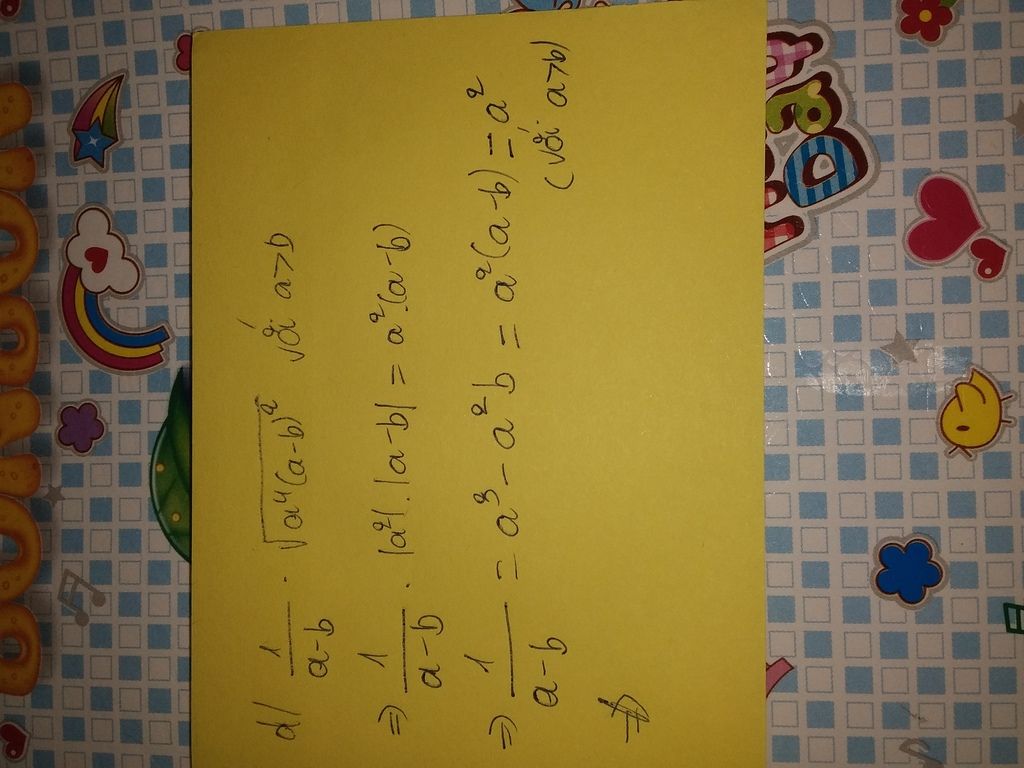 d/ 1/(a-b) . √(a⁴(a-b)²) với a>b
⇒ 1/(a-b) . |a²| . |a-b| = a².(a-b)
⇒ 1/(a-b) = a³ - a²b = a²(a-b) = a²
(với a>b)
⇒